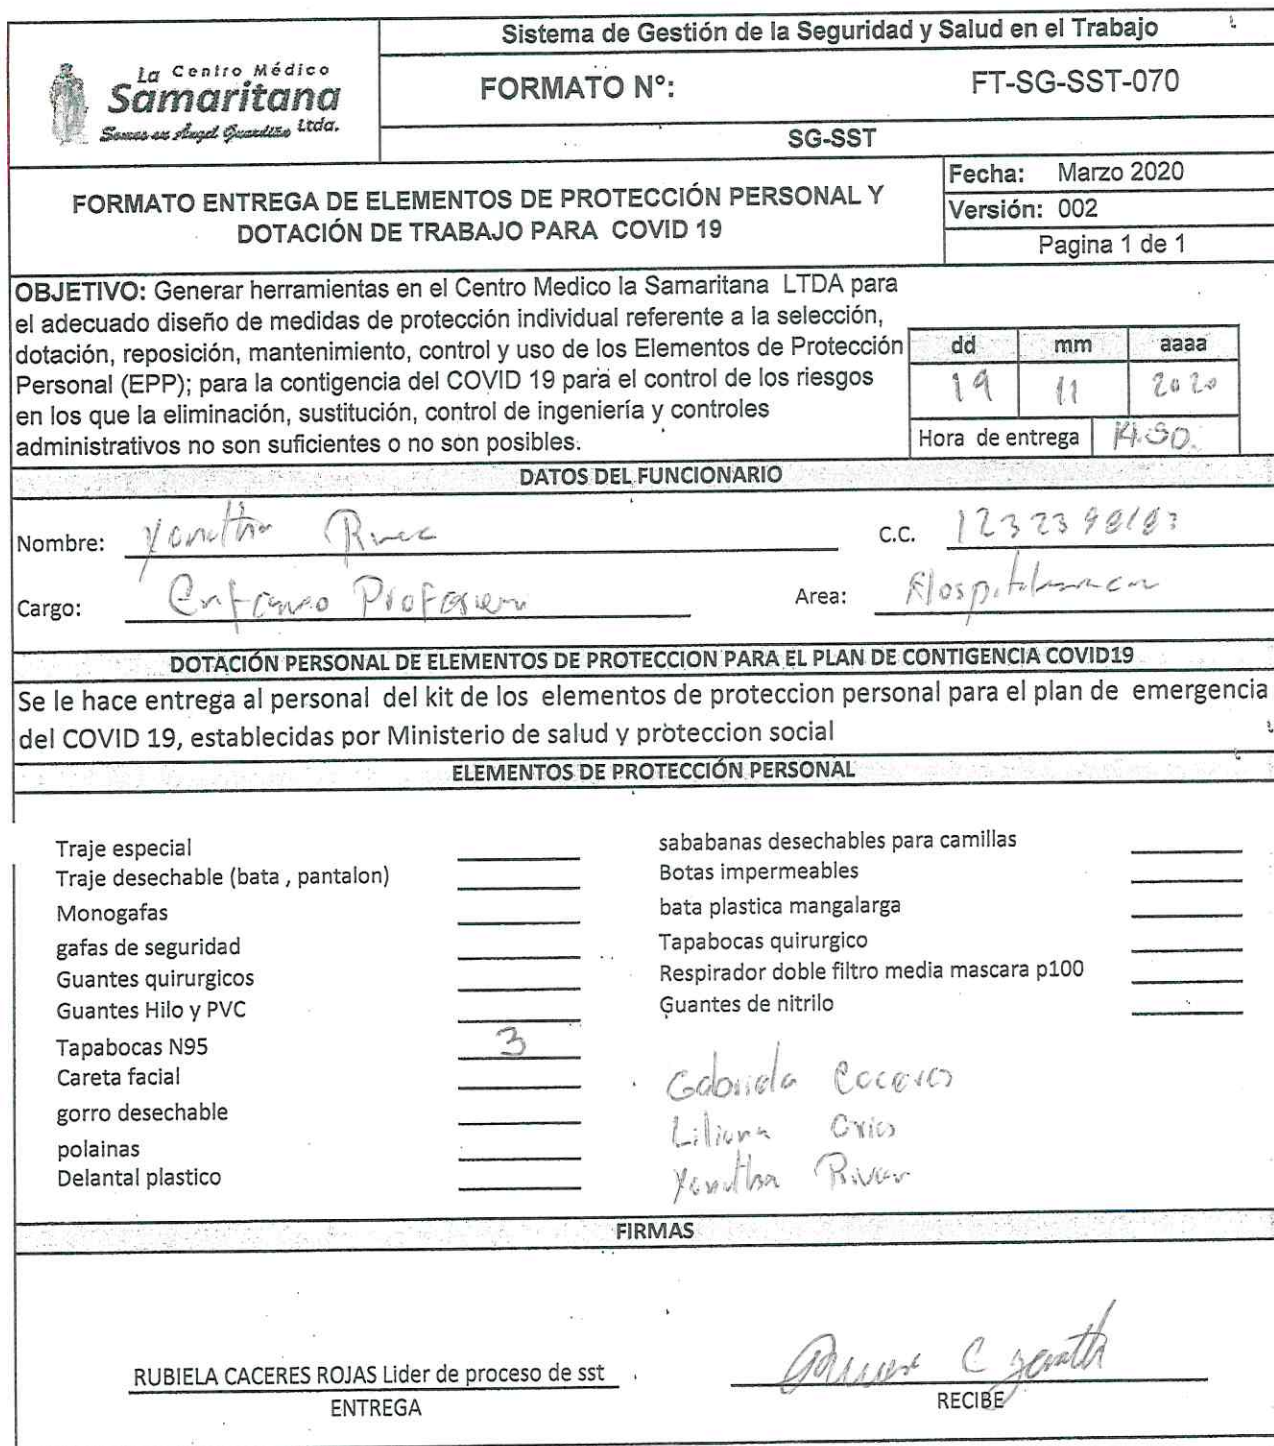 Sistema de Gestión de la Seguridad y Salud en el Trabajo
La Centro Médico
Samaritana
Somos su Ángel Guardián Ltda.
FORMATO Nº: FT-SG-SST-070
SG-SST
FORMATO ENTREGA DE ELEMENTOS DE PROTECCIÓN PERSONAL Y
DOTACIÓN DE TRABAJO PARA COVID 19
Fecha: Marzo 2020
Versión: 002
Pagina 1 de 1
OBJETIVO: Generar herramientas en el Centro Medico la Samaritana LTDA para
el adecuado diseño de medidas de protección individual referente a la selección,
dotación, reposición, mantenimiento, control y uso de los Elementos de Protección
Personal (EPP); para la contigencia del COVID 19 para el control de los riesgos
en los que la eliminación, sustitución, control de ingeniería y controles
administrativos no son suficientes o no son posibles.
dd mm aaaa
19 11 2020
Hora de entrega
DATOS DEL FUNCIONARIO
Nombre: C.C.
Cargo: Area:
DOTACIÓN PERSONAL DE ELEMENTOS DE PROTECCION PARA EL PLAN DE CONTIGENCIA COVID19
Se le hace entrega al personal del kit de los elementos de proteccion personal para el plan de emergencia
del COVID 19, establecidas por Ministerio de salud y proteccion social
ELEMENTOS DE PROTECCIÓN PERSONAL
Traje especial
Traje desechable (bata , pantalon)
Monogafas
gafas de seguridad
Guantes quirurgicos
Guantes Hilo y PVC
Tapabocas N95 3
Careta facial
gorro desechable
polainas
Delantal plastico
sababanas desechables para camillas
Botas impermeables
bata plastica mangalarga
Tapabocas quirurgico
Respirador doble filtro media mascara p100
Guantes de nitrilo
Gabriela
Liliana
FIRMAS
RUBIELA CACERES ROJAS Lider de proceso de sst
ENTREGA
RECIBE